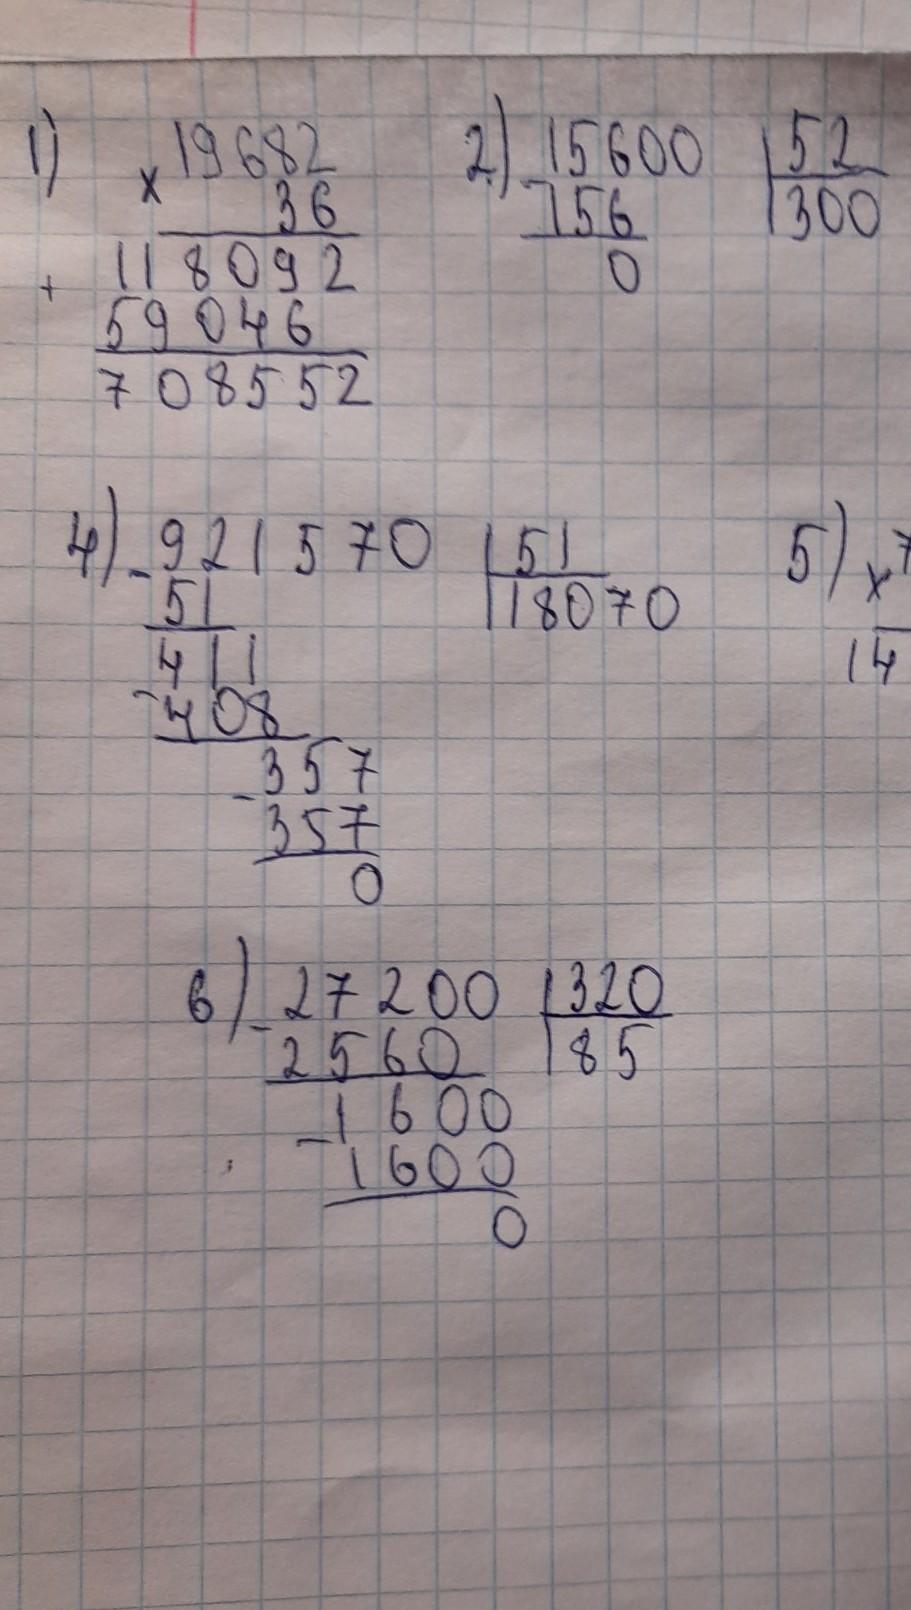 1) 19682
× 36
+ 118092
59046
708552
2) - 15600 | 52
156 | 300
0
4) - 921570 | 51
51 | 18070
411
- 408
- 357
357
0
5) × 7
14
6) - 27200 | 320
2560 | 85
- 1600
1600
0